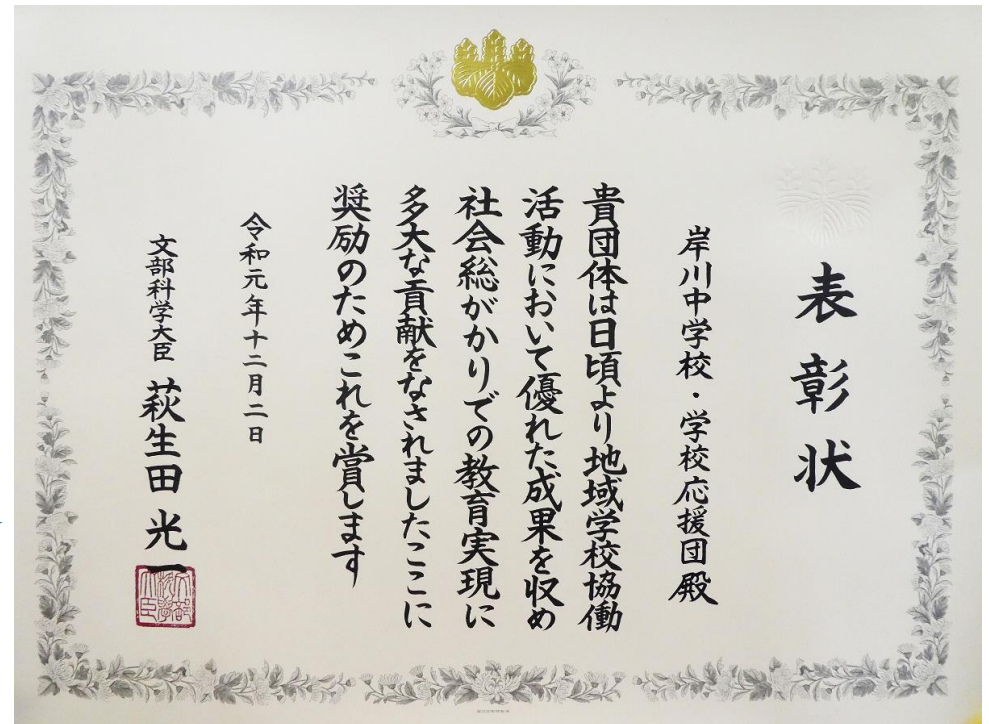 表彰状
岸川中学校・学校応援団殿
貴団体は日頃より地域学校協働
活動において優れた成果を収め
社会総がかりでの教育実現に
多大な貢献をなされましたここに
奨励のためこれを賞します
令和元年十二月二日
文部科学大臣 萩生田光一